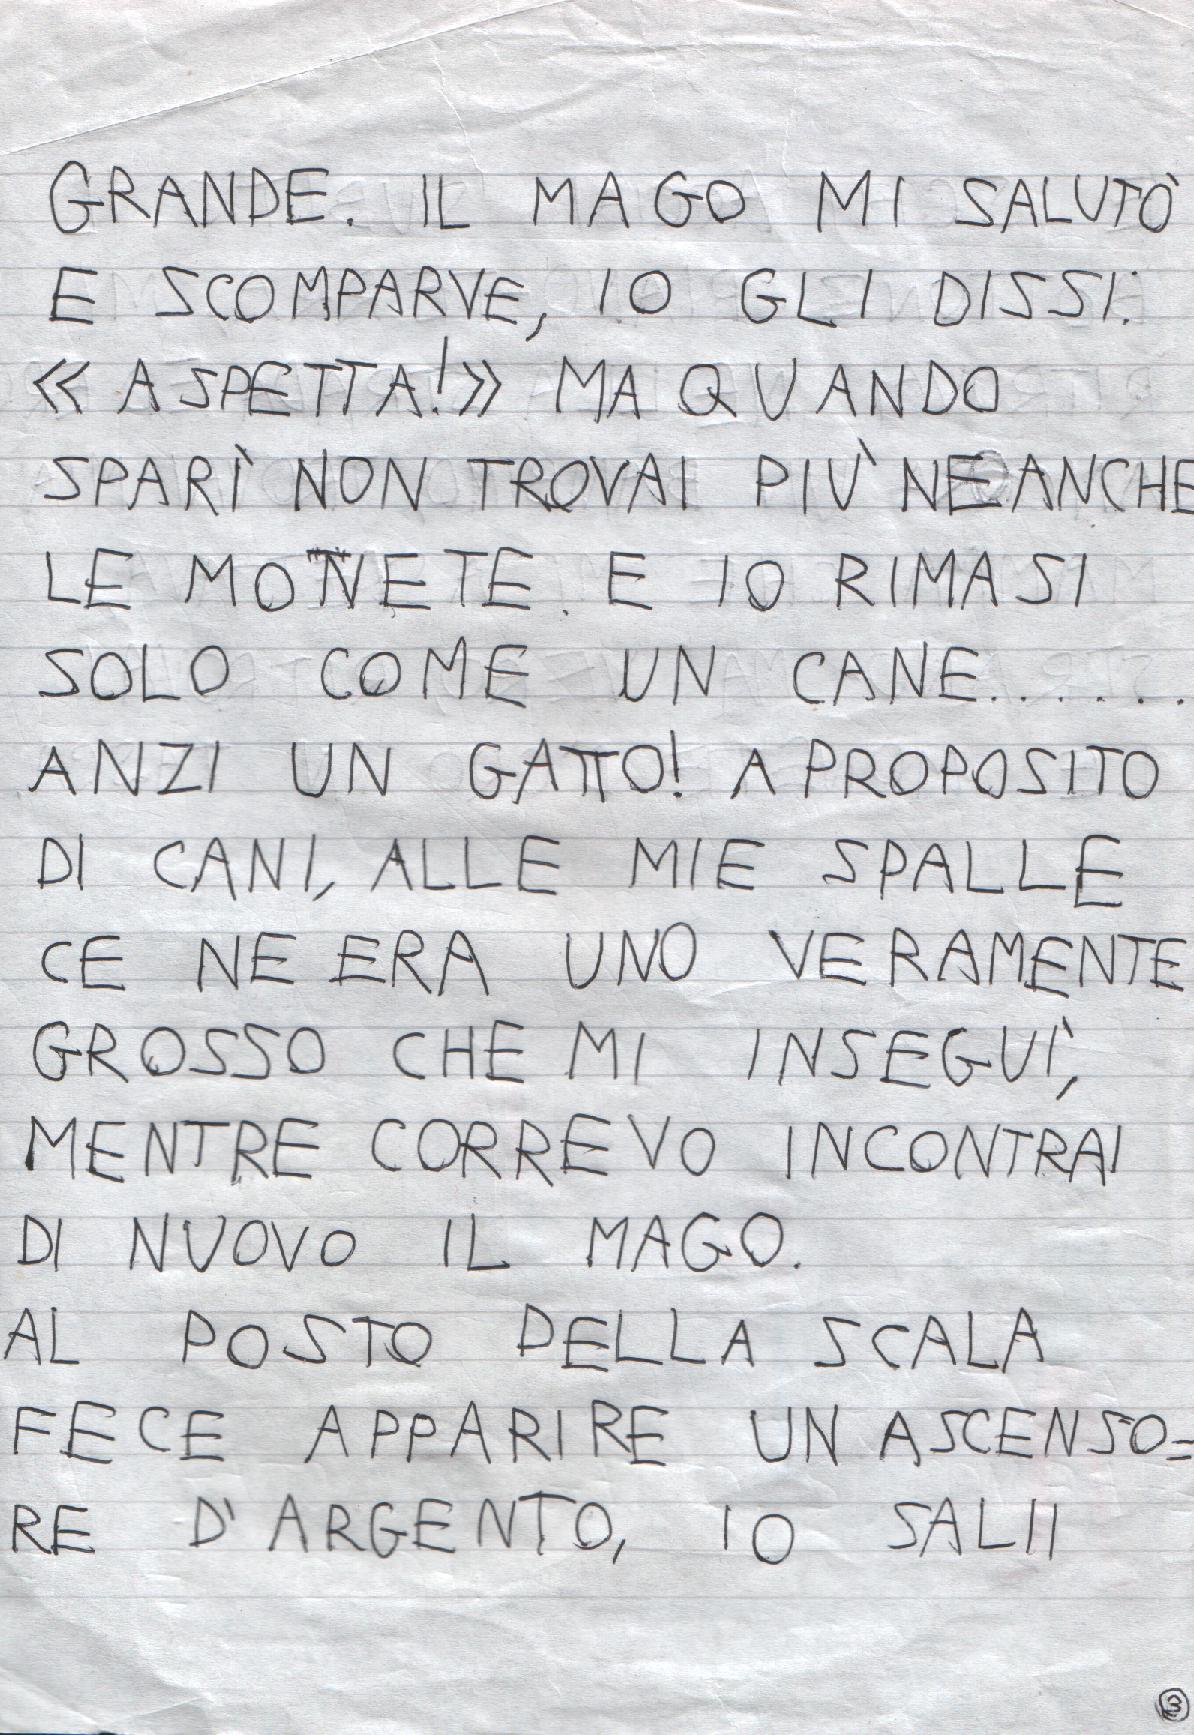 GRANDE. IL MAGO MI SALUTÒ
E SCOMPARVE, IO GLI DISSI:
«ASPETTA!» MA QUANDO
SPARÌ NON TROVAI PIÙ NEANCHE
LE MONETE. E IO RIMASI
SOLO COME UN CANE......
ANZI UN GATTO! A PROPOSITO
DI CANI, ALLE MIE SPALLE
CE NE ERA UNO VERAMENTE
GROSSO CHE MI INSEGUÌ,
MENTRE CORREVO INCONTRAI
DI NUOVO IL MAGO.
AL POSTO DELLA SCALA
FECE APPARIRE UN ASCENSO=
RE D'ARGENTO, IO SALII
3